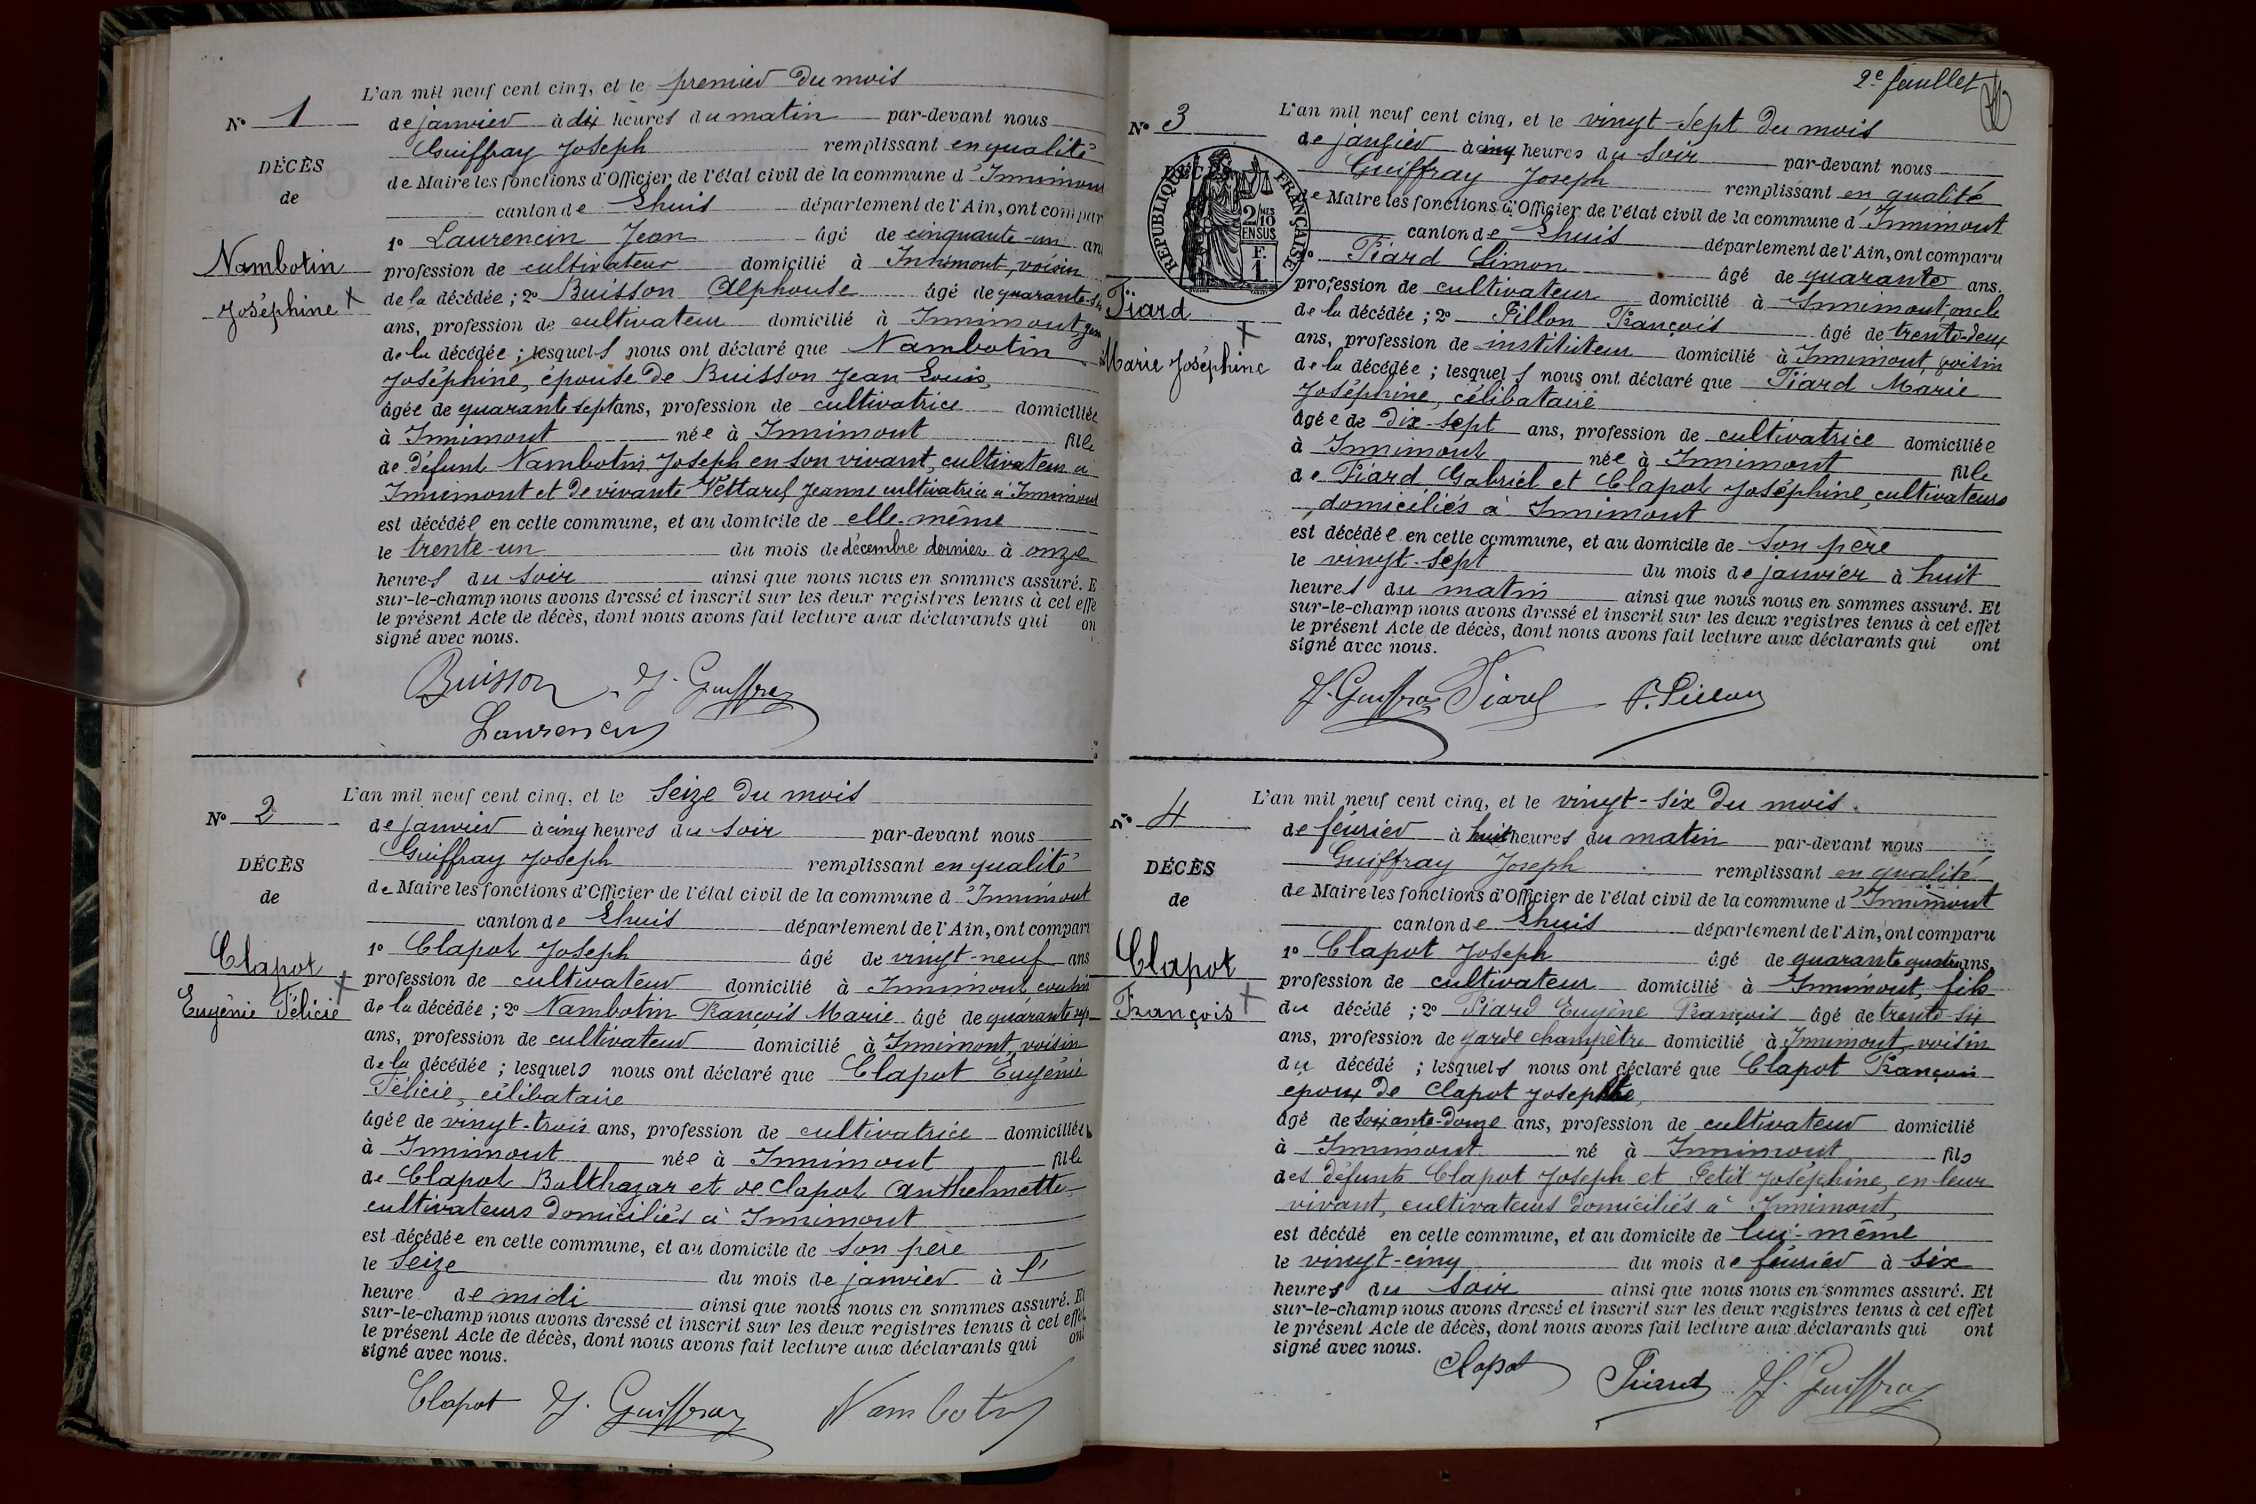 L'an mil neuf cent cinq, et le premier du mois
N° 1
de janvier à dix heures du matin par-devant nous
Guiffray Joseph remplissant en qualité
DÉCÈS
de Maire les fonctions d'Officier de l'état civil de la commune d'Innimont
de
canton de Lhuis département de l'Ain, ont compar
1° Laurencin Jean âgé de cinquante-un ans
Nambotin
profession de cultivateur domicilié à Innimont, voisin
Joséphine +
de la décédée ; 2° Buisson Alphonse âgé de quarante-
ans, profession de cultivateur domicilié à Innimont,
de la décédée ; lesquels nous ont déclaré que Nambotin
Joséphine, épouse de Buisson Jean Louis,
âgée de quarante sept ans, profession de cultivatrice domiciliée
à Innimont née à Innimont fille
de défunt Nambotin Joseph en son vivant, cultivateur à
Innimont et de vivante Vettard Jeanne cultivatrice à Innimont
est décédée en cette commune, et au domicile de elle-même
le trente-un du mois de décembre dernier à onze
heures du soir ainsi que nous nous en sommes assuré. E
sur-le-champ nous avons dressé et inscrit sur les deux registres tenus à cet effe
le présent Acte de décès, dont nous avons fait lecture aux déclarants qui on
signé avec nous.
Buisson J. Guiffray
Laurencin
L'an mil neuf cent cinq, et le Seize du mois
N° 2
de janvier à cinq heures du soir par-devant nous
Guiffray Joseph remplissant en qualité
DÉCÈS
de Maire les fonctions d'Officier de l'état civil de la commune d'Innimont
de
canton de Lhuis département de l'Ain, ont compar
Clapot
1° Clapot Joseph âgé de vingt-neuf ans
profession de cultivateur domicilié à Innimont, cousin
Eugénie Félicie +
de la décédée ; 2° Nambotin François Marie âgé de quarante sept
ans, profession de cultivateur domicilié à Innimont, voisin
de la décédée ; lesquels nous ont déclaré que Clapot Eugénie
Félicie, célibataire
âgée de vingt-trois ans, profession de cultivatrice domiciliée
à Innimont née à Innimont fille
de Clapot Balthazar et de Clapot Anthelmette
cultivateurs domiciliés à Innimont
est décédée en cette commune, et au domicile de son père
le Seize du mois de janvier à l'
heure de midi ainsi que nous nous en sommes assuré. Et
sur-le-champ nous avons dressé et inscrit sur les deux registres tenus à cet effet
le présent Acte de décès, dont nous avons fait lecture aux déclarants qui ont
signé avec nous.
Clapot J. Guiffray Nambotin
2e feuillet
L'an mil neuf cent cinq, et le vingt-sept du mois
N° 3
de janvier à cinq heures du soir par-devant nous
Guiffray Joseph remplissant en qualité
DÉC
RÉPUBLIQUE FRANÇAISE
2/10 MES EN SUS
F. 1
de Maire les fonctions d'Officier de l'état civil de la commune d'Innimont
canton de Lhuis département de l'Ain, ont comparu
1° Piard Simon âgé de quarante ans.
profession de cultivateur domicilié à Innimont, oncle
Piard
de la décédée ; 2° Pillon François âgé de trente-deux
+
ans, profession de instituteur domicilié à Innimont, voisin
Marie Joséphine
de la décédée ; lesquels nous ont déclaré que Piard Marie
Joséphine, célibataire
âgée de dix-sept ans, profession de cultivatrice domiciliée
à Innimont née à Innimont fille
de Piard Gabriel et Clapot Joséphine, cultivateurs
domiciliés à Innimont
est décédée en cette commune, et au domicile de son père
le vingt-sept du mois de janvier à huit
heures du matin ainsi que nous nous en sommes assuré. Et
sur-le-champ nous avons dressé et inscrit sur les deux registres tenus à cet effet
le présent Acte de décès, dont nous avons fait lecture aux déclarants qui ont
signé avec nous.
J. Guiffray Piard F. Pillon
L'an mil neuf cent cinq, et le vingt-six du mois
N° 4
de février à huit heures du matin par-devant nous
Guiffray Joseph remplissant en qualité
DÉCÈS
de Maire les fonctions d'Officier de l'état civil de la commune d'Innimont
de
canton de Lhuis département de l'Ain, ont comparu
Clapot
1° Clapot Joseph âgé de quarante quatre ans,
profession de cultivateur domicilié à Innimont, fils
François +
du décédé ; 2° Piard Eugène François âgé de trente-six
ans, profession de garde champêtre domicilié à Innimont, voisin
du décédé ; lesquels nous ont déclaré que Clapot François
époux de Clapot Josephte,
âgé de soixante-douze ans, profession de cultivateur domicilié
à Innimont né à Innimont fils
des défunts Clapot Joseph et Petit Joséphine, en leur
vivant, cultivateurs domiciliés à Innimont,
est décédé en cette commune, et au domicile de lui-même
le vingt-cinq du mois de février à six
heures du soir ainsi que nous nous en sommes assuré. Et
sur-le-champ nous avons dressé et inscrit sur les deux registres tenus à cet effet
le présent Acte de décès, dont nous avons fait lecture aux déclarants qui ont
signé avec nous.
Clapot Piard J. Guiffray